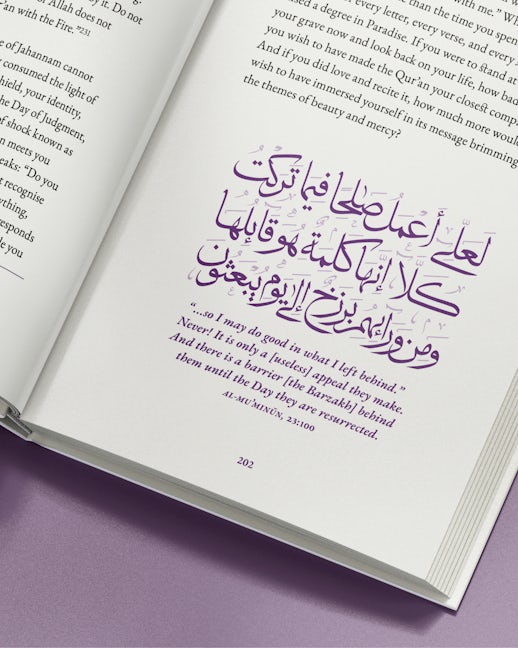 by it. Do not
of Allah does not
'an with the Fire."231
e of Jahannam cannot
consumed the light of
shield, your identity,
he Day of Judgment,
of shock known as
n meets you
eaks: "Do you
t recognise
ything,
esponds
de you
than the time you spen
with me." Wh
sed a degree in Paradise. If you were to stand at
your grave now and look back on your life, how bad
you wish to have made the Qur'ān your closest comp
And if you did love and recite it, how much more woul
wish to have immersed yourself in its message brimming
the themes of beauty and mercy?
لَعَلِّي أَعْمَلُ صَلِحًا فِيمَا تَرَكْتُ
كَلَّا إِنَّهَا كَلِمَةٌ هُوَ قَائِلُهَا
وَمِن وَرَائِهِم بَرْزَخٌ إِلَى يَوْمِ يُبْعَثُونَ
“...so I may do good in what I left behind.”
Never! It is only a [useless] appeal they make.
And there is a barrier [the Barzakh] behind
them until the Day they are resurrected.
AL-MU'MINŪN, 23:100
202